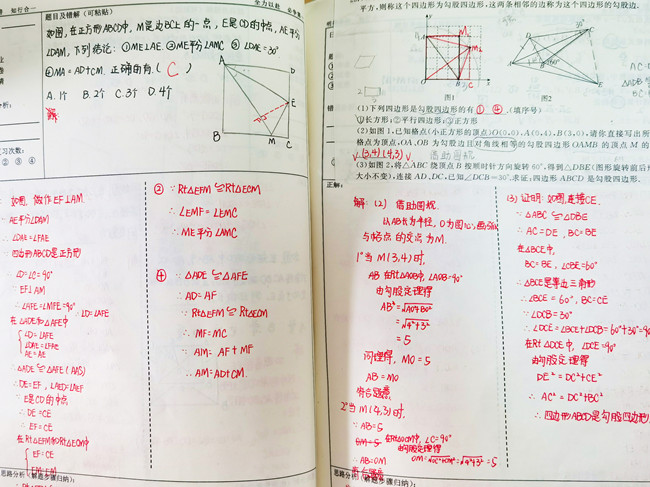 题目及错解（可粘贴）
如图,在正方形ABCD中,M是边BC上的一点,E是CD的中点,AE平分
∠DAM,下列结论:①ME⊥AE ②ME平分∠AMC ③∠DAE=30°
④MA=AD+CM.正确的有(C)
A.1个 B.2个 C.3个 D.4个
A
D
E
B
M
C
如图,做作EF⊥AM
∵AE平分∠DAM
∴∠DAE=∠FAE
∵四边形ABCD是正方形
∴∠D=∠C=90°
∵EF⊥AM
∴∠AFE=∠MFE=90°
∴∠D=∠AFE
在△ADE和△AFE中
∠D=∠AFE
∠DAE=∠FAE
AE=AE
∴△ADE≌△AFE(AAS)
∴DE=EF,∠AED=∠AEF
∵E是CD的中点
∴DE=CE
∴EF=CE
在Rt△EFM和Rt△ECM中
EF=CE
EM=EM
② ∵Rt△EFM≌Rt△ECM
∴∠EMF=∠EMC
∴ME平分∠AMC
④ ∵△ADE≌△AFE
∴AD=AF
∵Rt△EFM≌Rt△ECM
∴MF=MC
∵AM=AF+MF
∴AM=AD+CM.
思路分析(解题步骤归纳):
平方,则称这个四边形为勾股四边形,这两条相邻的边称为这个四边形的勾股边.
图1
图2
60°
30°
(1)下列四边形是勾股四边形的有 ① ④ .(填序号)
①长方形;②平行四边形;③正方形
(2)如图1,已知格点(小正方形的顶点)O(0,0),A(0,4),B(3,0),请你直接写出所
格点为顶点,OA,OB为勾股边且对角线相等的勾股四边形OAMB的顶点M的
(3,4)(4,3)
借助圆规
(3)如图2,将△ABC绕顶点B按顺时针方向旋转60°,得到△DBE(图形旋转前后
大小不变),连接AD,DC,已知∠DCB=30°.求证:四边形ABCD是勾股四边形.
正解:
解:(2) 借助圆规
以AB长为半径,O为圆心,画弧
与格点的交点为M.
1°当M(3,4)时,
AB在Rt△AOB中,∠AOB=90°
由勾股定理得
=5
同理得,MO=5
AB=MO
符合题意
2°当M(4,3)时,
∵AB=5
由勾股定理得
∴AB=OM
符合题意
(3)证明:如图,连接CE.
∵△ABC≌△DBE
∴AC=DE,BC=BE
在△BCE中,
BC=BE,∠CBE=60°
∴△BCE是等边三角形
∴∠BCE=60°,BC=CE
∵∠DCB=30°
∴∠DCE=∠BCE+∠DCB=60°+30°=90
在Rt△DCE中,∠DCE=90°
由勾股定理得
DE²=DC²+CE²
∴AC²=DC²+BC²
∴四边形ABCD是勾股四边形
思路分析(解题步骤归纳):